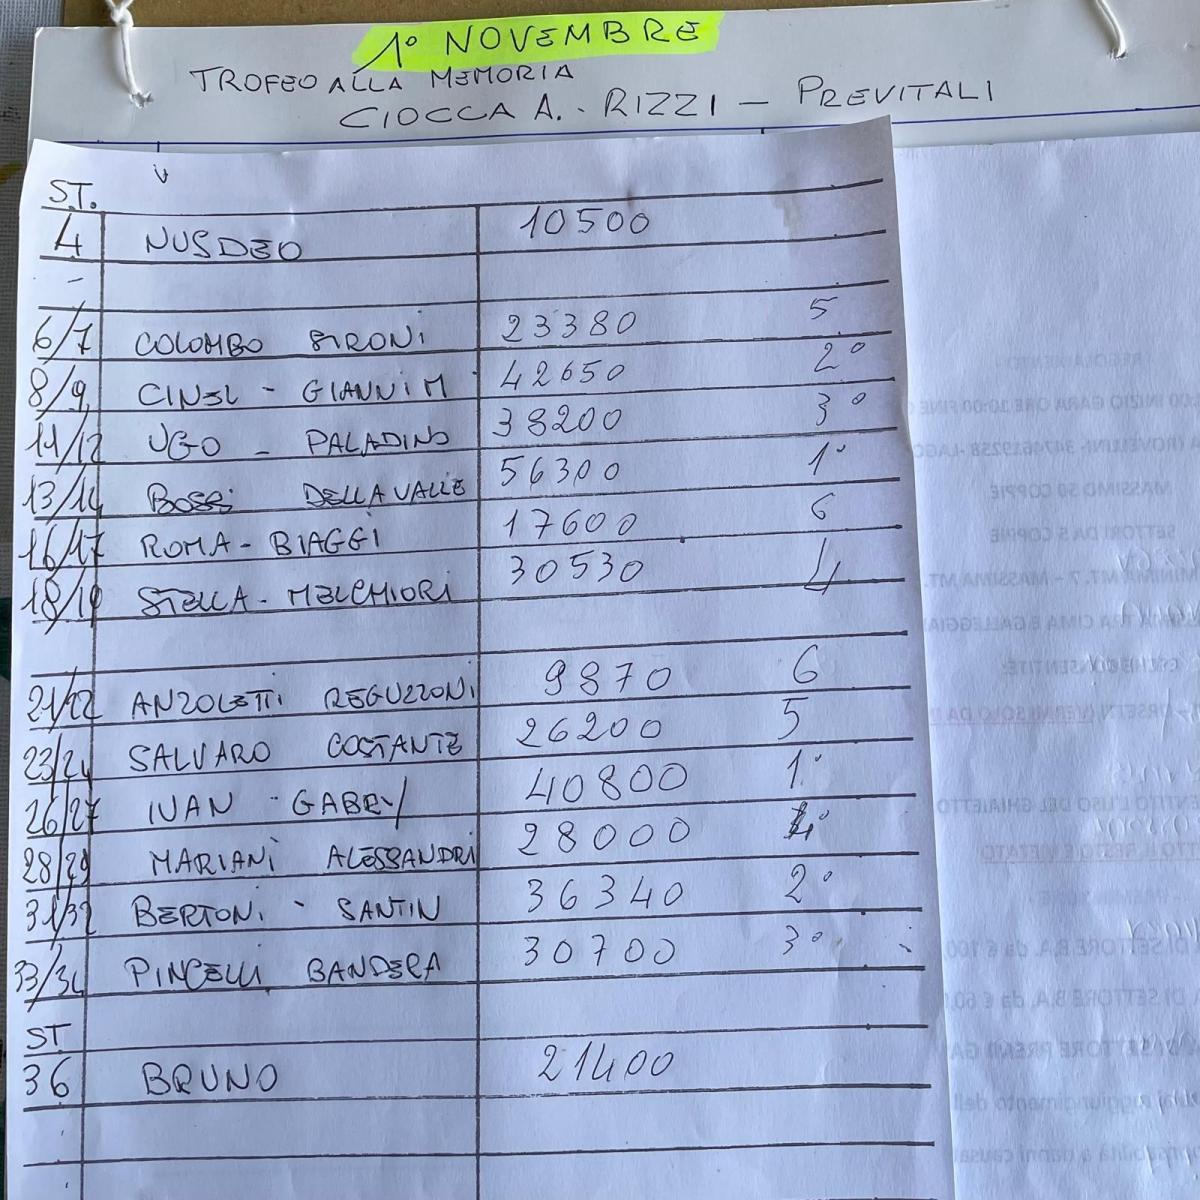 1° NOVEMBRE
TROFEO ALLA MEMORIA
CIOCCA A. - RIZZI - PREVITALI
ST.
4 NUSDEO 10500
6/7 COLOMBO SIRONI 23380 5
8/9 CINEL - GIANNI M 42650 2°
11/12 UGO - PALADINO 38200 3°
13/14 BOSSI DELLAVALLE 56300 1°
16/17 ROMA - BIAGGI 17600 6
18/19 STELLA - MELCHIORI 30530 4
21/22 ANZOLETTI REGUZZONI 9870 6
23/24 SALVARO COSTANTE 26200 5
26/27 IVAN - GABRY 40800 1°
28/29 MARIANI ALESSANDRI 28000 4°
31/32 BERTONI - SANTIN 36340 2°
33/34 PINCELLI BANDERA 30700 3°
ST
36 BRUNO 21400